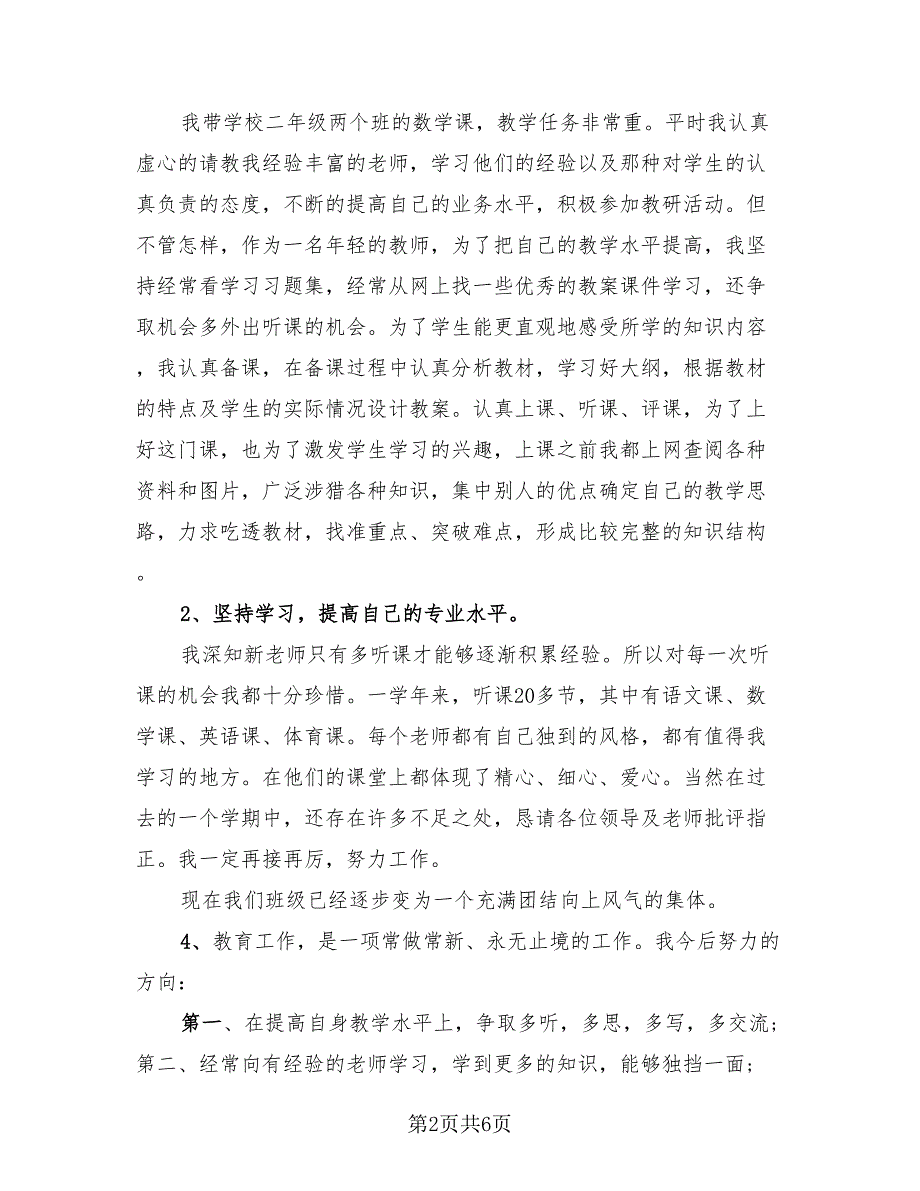 我带学校二年级两个班的数学课，教学任务非常重。平时我认真
虚心的请教我经验丰富的老师，学习他们的经验以及那种对学生的认
真负责的态度，不断的提高自己的业务水平，积极参加教研活动。但
不管怎样，作为一名年轻的教师，为了把自己的教学水平提高，我坚
持经常看学习习题集，经常从网上找一些优秀的教案课件学习，还争
取机会多外出听课的机会。为了学生能更直观地感受所学的知识内容
，我认真备课，在备课过程中认真分析教材，学习好大纲，根据教材
的特点及学生的实际情况设计教案。认真上课、听课、评课，为了上
好这门课，也为了激发学生学习的兴趣，上课之前我都上网查阅各种
资料和图片，广泛涉猎各种知识，集中别人的优点确定自己的教学思
路，力求吃透教材，找准重点、突破难点，形成比较完整的知识结构
。
2、坚持学习，提高自己的专业水平。
我深知新老师只有多听课才能够逐渐积累经验。所以对每一次听
课的机会我都十分珍惜。一学年来，听课20多节，其中有语文课、数
学课、英语课、体育课。每个老师都有自己独到的风格，都有值得我
学习的地方。在他们的课堂上都体现了精心、细心、爱心。当然在过
去的一个学期中，还存在许多不足之处，恳请各位领导及老师批评指
正。我一定再接再厉，努力工作。
现在我们班级已经逐步变为一个充满团结向上风气的集体。
4、教育工作，是一项常做常新、永无止境的工作。我今后努力的
方向：
第一、在提高自身教学水平上，争取多听，多思，多写，多交流；
第二、经常向有经验的老师学习，学到更多的知识，能够独挡一面；
第2页共6页